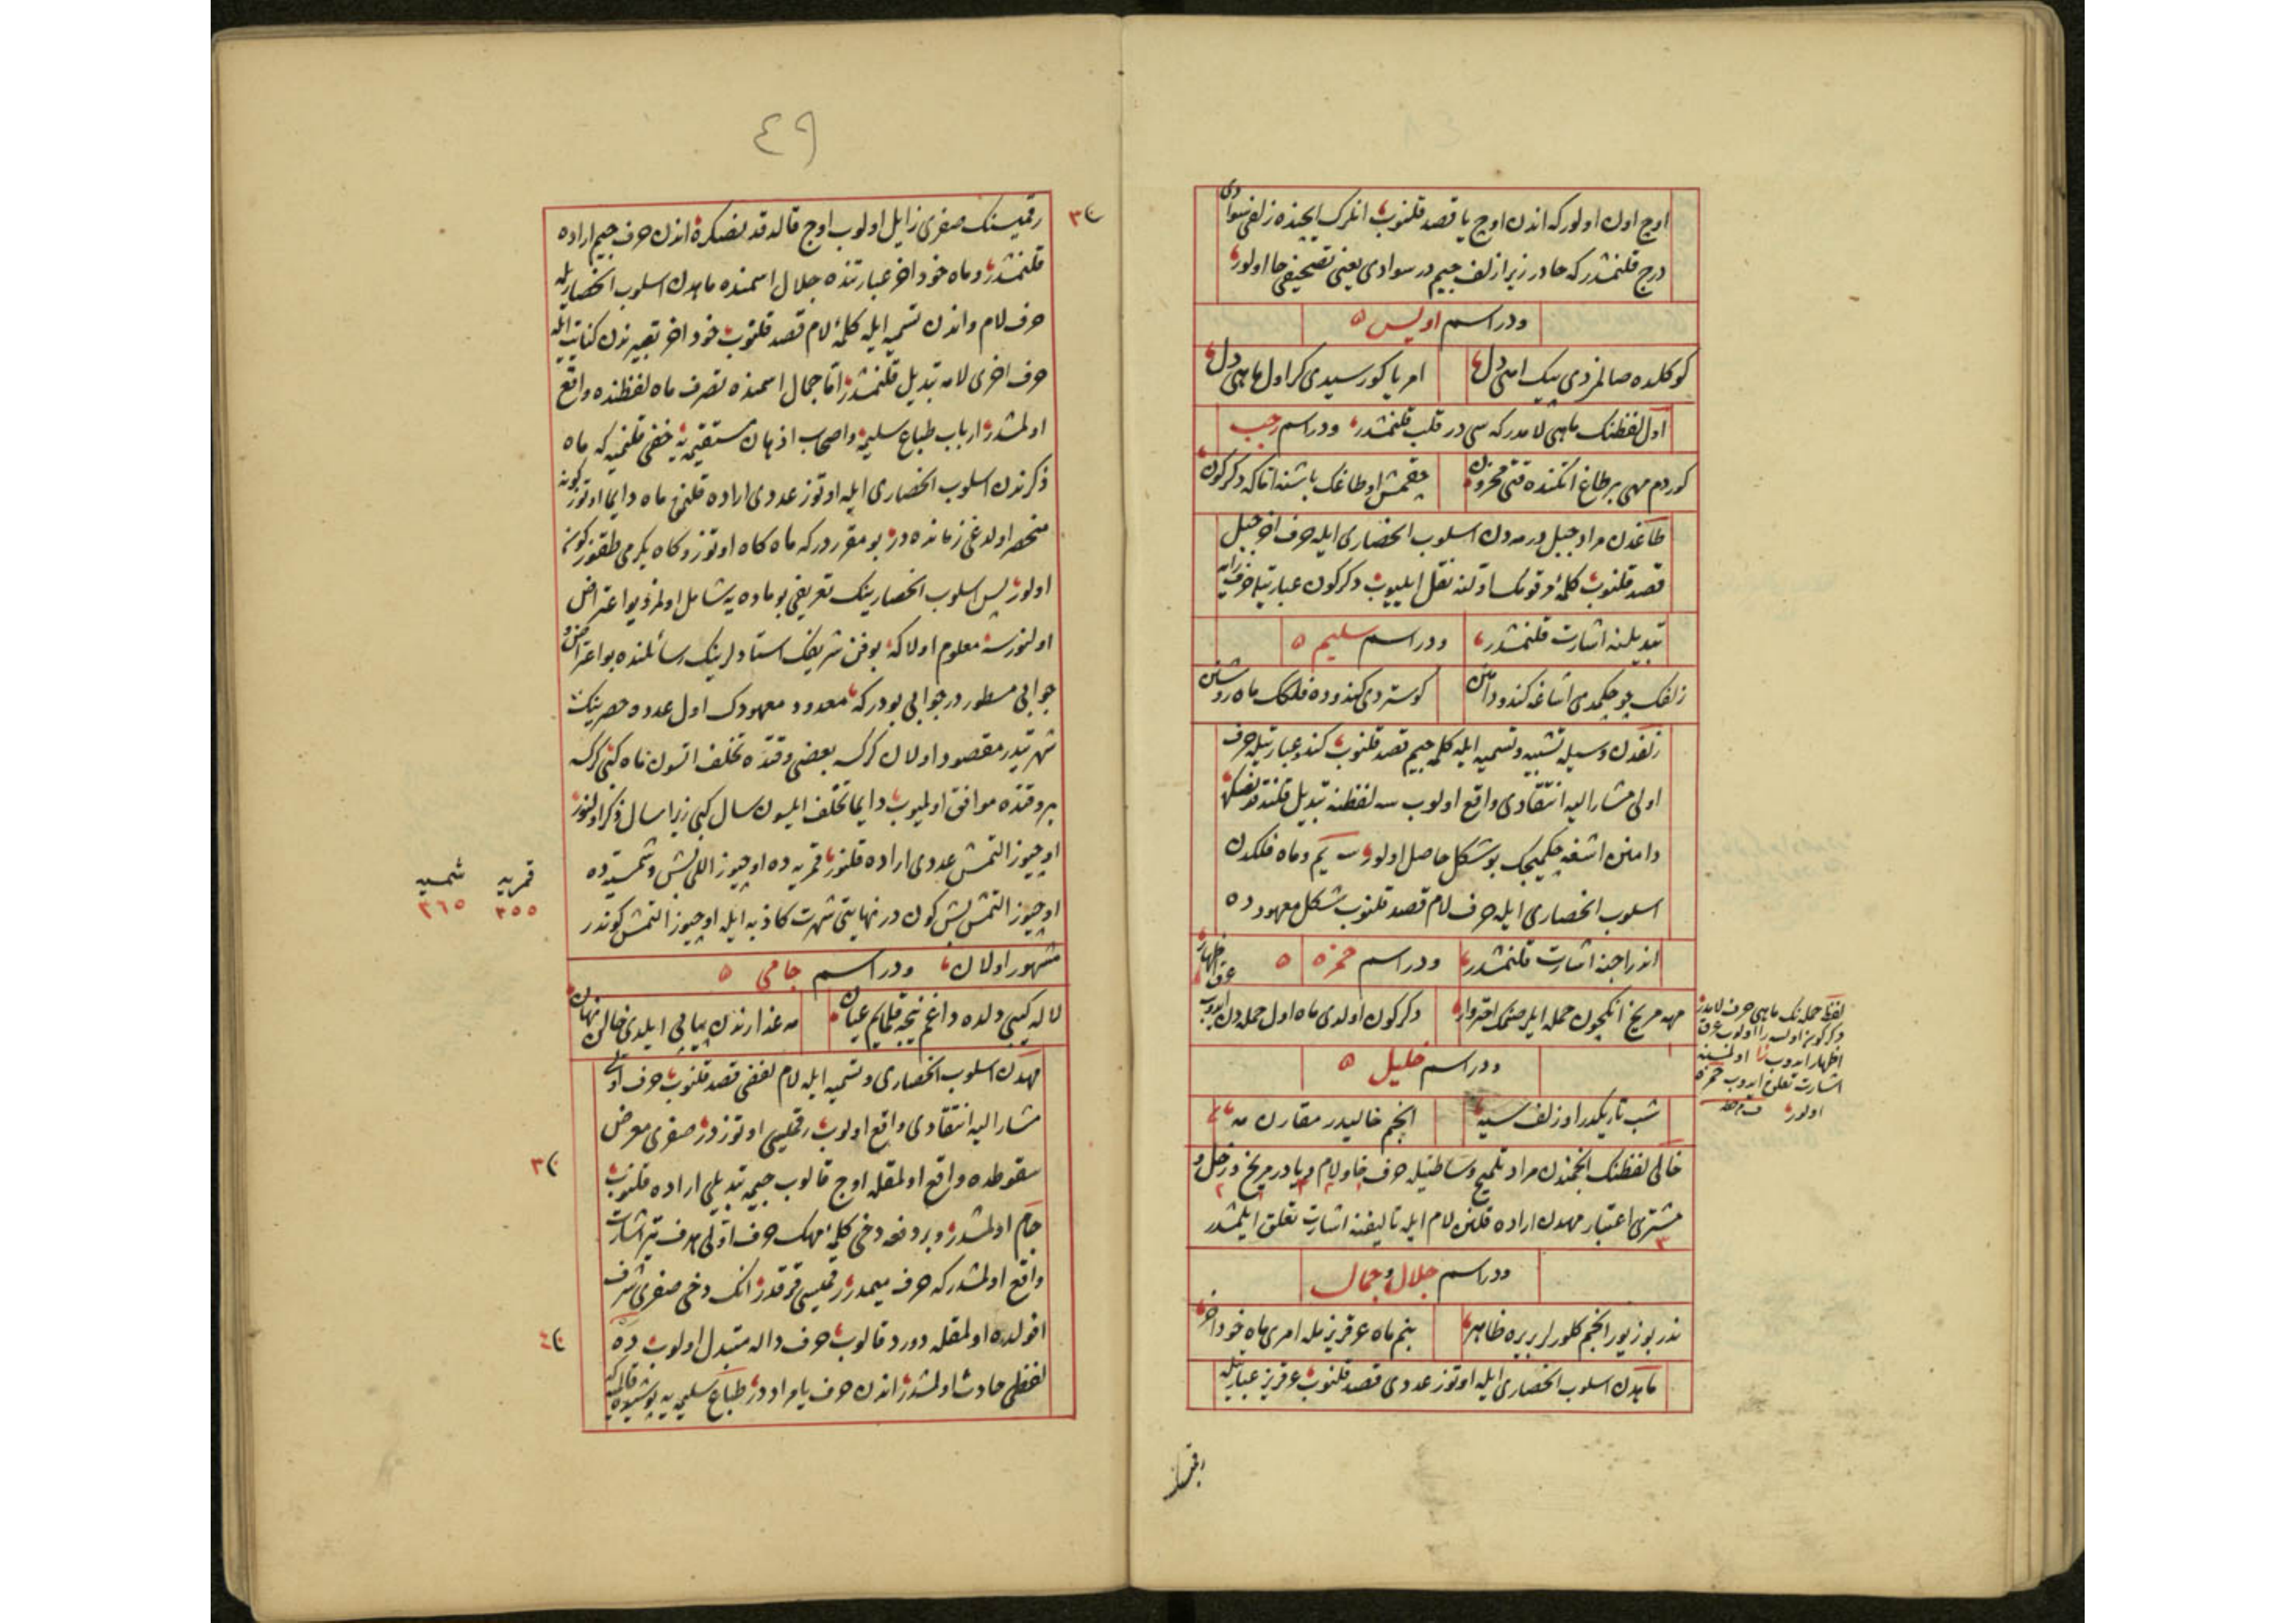 اوج اول اولور كه اندن اوج يا قصد قلنوب انلرك ايچنده زلفى سوادى
درج قلنمشدر كه حا در زيرا زلف جيم در سوادى يعنى تصحيفى حا اولور
ودر اسم اويس ٥
كوكلده صالمزدى پيك امنى دل
امر يا كورسيدى كر اول ماهى دل
اول لفظنك ماهى لامدر كه سى در قلب قلنمشدر ودر اسم رجب
كوردم مهى بر طاغ اتكنده قتى محزون
چقمش او طاغك باشنه اتا كه دكركون
طاغدن مراد جبل در مه دن اسلوب انحصارى ايله حرف اخر جبل
قصد قلنوب كلمۀ اولنه نقل ايليوب دكركون عبارتيله حرف زايه
تبديلنه اشارت قلنمشدر
ودر اسم سليم ٥
زلفك چو چكمدى اشاغه كندو دامن
كوستردى كندوده فلك ماه روشن
زلفدن وسيلۀ تشبيه وتسميه ايله كلمۀ جيم قصد قلنوب كندو عبارتيله حرف
اولى مشار اليه انتقادى واقع اولوب سه لفظنه تبديل قلندقدنصكره
دامنن اشغه چكيجك بو شكل حاصل اولور سه يم وماه فلكدن
اسلوب انحصارى ايله حرف لام قصد قلنوب شكل معهوده ده
اندراجنه اشارت قلنمشدر
ودر اسم حمزه ٥
اظهار عرق
مهه مريخ انكچون حمله ايلر
دكركون اولدى ماه اول حمله دن ايدوب
لفظ حمله نك ماهى حرف لامدر
دكركون اولسه را اولوب عرق
اظهار ايدوب زا اولمسنه
اشارت تعلق ايدوب حمزه
اولور
ودر اسم خليل ٥
شب تاريكدر او زلف سيه
انجم خاليدر مقارن مه
خالى لفظنك انجمندن مراد تلميح وساطتيله حرف خا ولام ويا در مريخ وزحل و
مشترى اعتبار مهدن اراده قلنن لام ايله تاليفنه اشارت تعلق ايلمشدر
ودر اسم جلال وجمال
ندر بو زيور انجم كلورلر بربره ظاهر
بنم ماه عرقريزيله امرى ماه خود اخر
ماهدن اسلوب انحصارى ايله اوتوز عددى قصد قلنوب عرقريز عبارتيله
رقمسنك
٤٩
رقمينك صفرى زايل اولوب اوج قالدقدنصكره اندن حرف جيم اراده
قلنمشدر وماه خود اخر عبارتنده جلال اسمنده ماهدن اسلوب انحصاريله
حرف لام واندن تسميه ايله كلمۀ لام قصد قلنوب خود اخر تعبيرندن كنايت ايله
حرف اخرى لامه تبديل قلنمشدر اما جمال اسمنده تصرف ماه لفظنده واقع
اولمشدر ارباب طباع سليمه واصحاب اذهان مستقيمه يه خفى قلنميه كه ماه
ذكرندن اسلوب انحصارى ايله اوتوز عددى اراده قلنمق ماه دايما اوتوز كونه
منحصر اولدغى زمانده در بو مقرر در كه ماه كاه اوتوز وكاه يكرمى طقوز كونه
اولور پس اسلوب انحصارينك تعريفى بو ماده يه شامل اولمز ديو اعتراض
اولنورسه معلوم اولا كه بو فن شريفك استادلرينك رسائلنده بو اعتراض و
جوابى مسطور در جوابى بودر كه معدود معهودك اول عدده حصرينك
شهرتيدر مقصود اولان كرك بعضى وقتده تخلف اتسون ماه كبى كرك
بر وقتده موافق اولميوب دايما تخلف ايلسون سال كبى زيرا سال ذكر اولنور
اوچيوز التمش عددى اراده قلنور قمريه ده اوچيوز اللى بش وشمسيه ده
اوچيوز التمش بش كون در نهايتى شهرت كاذبه ايله اوچيوز التمش كوندر
قمريه ٣٥٥
شمسيه ٣٦٥
مشهور اولان
ودر اسم جامى ٥
لاله كبى دلده داغم نيجه قيلمايم عيان
مه عذارندن پياپى ايلدى خالن نهان
مهدن اسلوب انحصارى وتسميه ايله لام لفظى قصد قلنوب حرف اولى
مشار اليه انتقادى واقع اولوب رقميسى اوتوزدر صفرى معرض
سقوطده واقع اولمقله اوج قالوب جيمه تبديلى اراده قلنوب
جام اولمشدر وبر دفعه دخى كلمۀ مهك حرف اولى هدف تير اشارت
واقع اولمشدر كه حرف ميمدر رقميسى قرقدر انك دخى صفرى شرف
افولده اولمقله دورد قالوب حرف داله متبدل اولوب ده
لفظى حادث اولمشدر اندن حرف يا مراددر طباع سليمه يه پوشيده قالميه كه